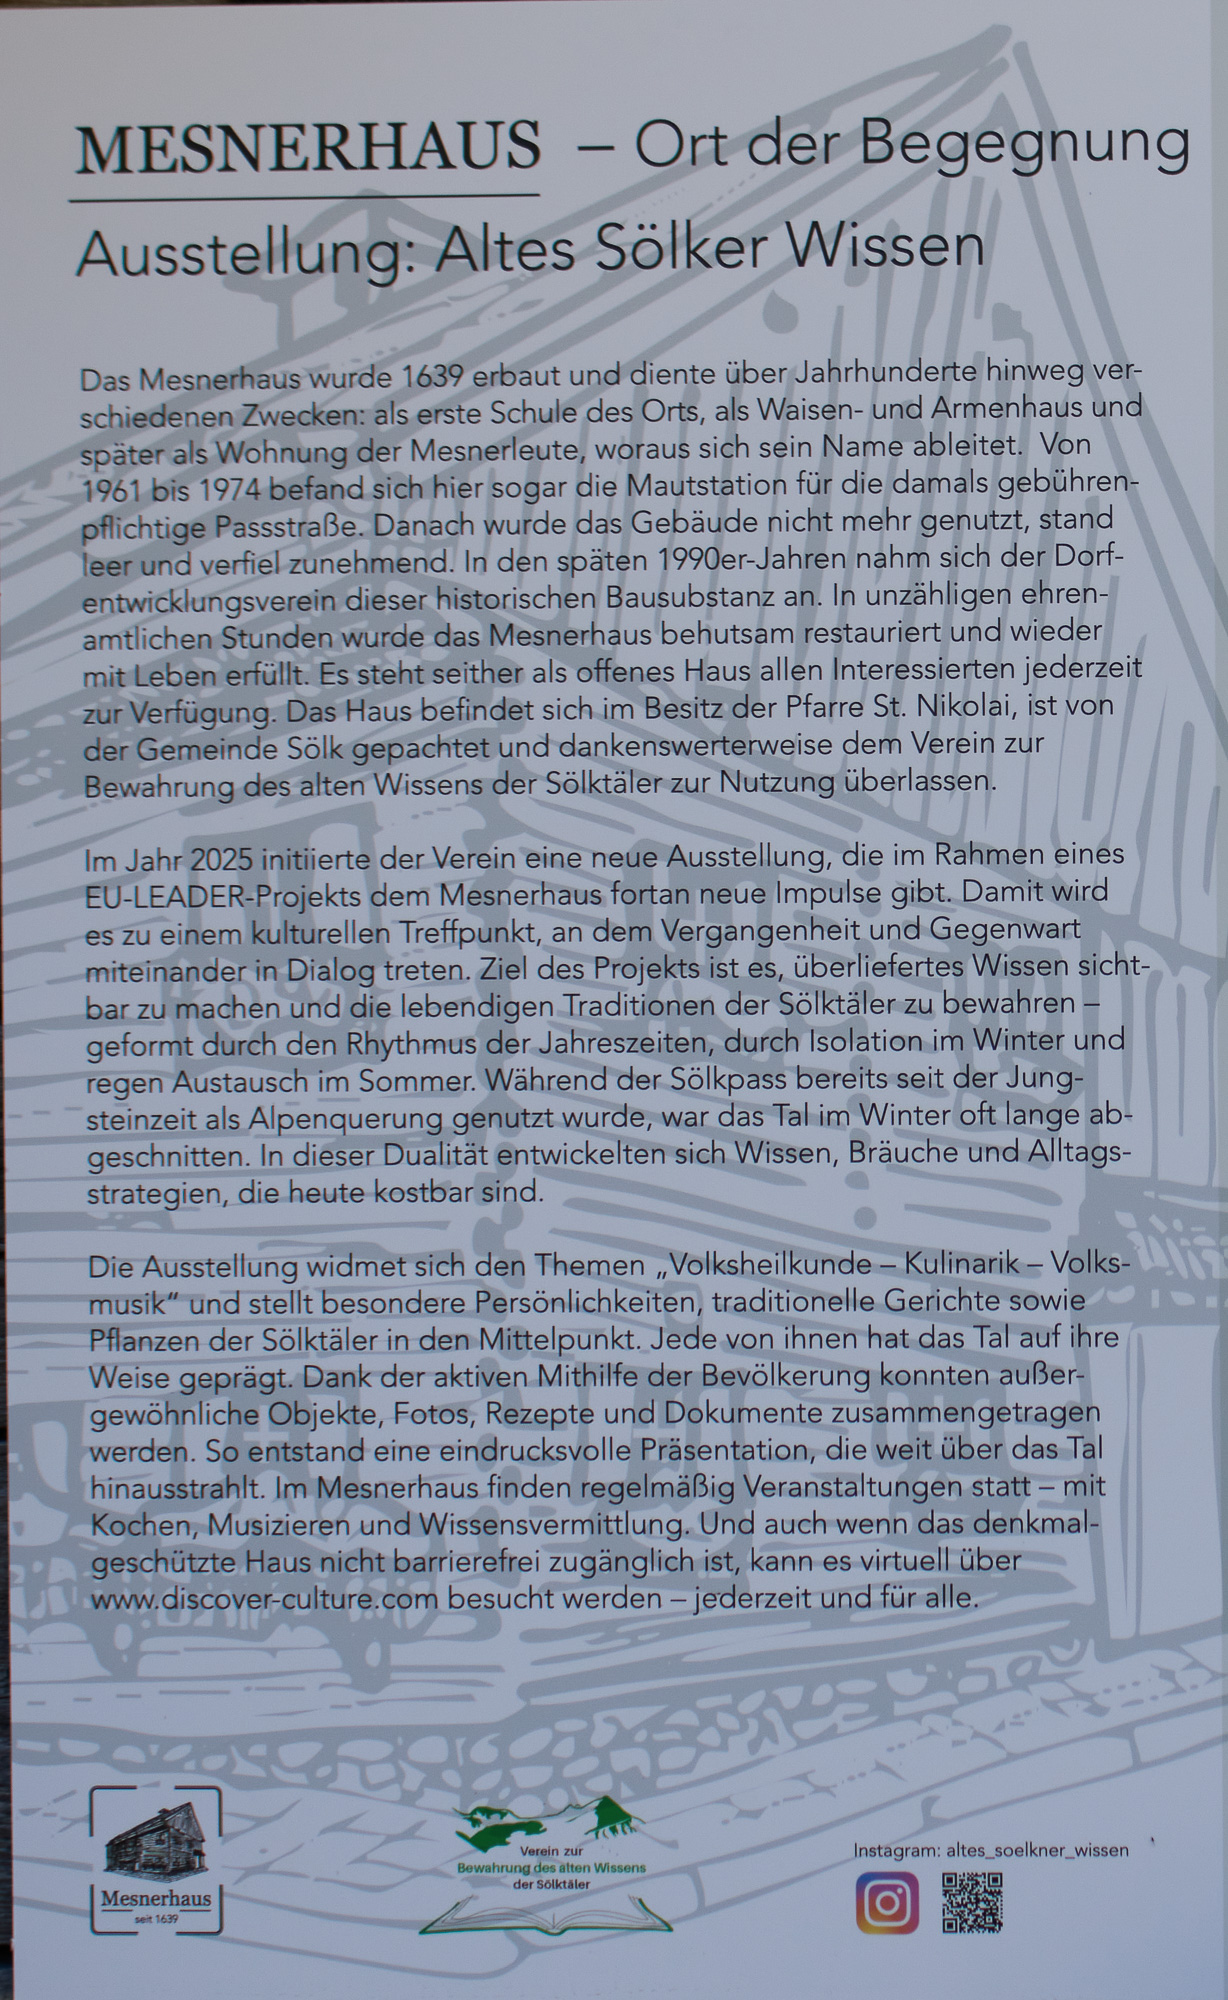 MESNERHAUS – Ort der Begegnung
Ausstellung: Altes Sölker Wissen
Das Mesnerhaus wurde 1639 erbaut und diente über Jahrhunderte hinweg ver-
schiedenen Zwecken: als erste Schule des Orts, als Waisen- und Armenhaus und
später als Wohnung der Mesnerleute, woraus sich sein Name ableitet. Von
1961 bis 1974 befand sich hier sogar die Mautstation für die damals gebühren-
pflichtige Passstraße. Danach wurde das Gebäude nicht mehr genutzt, stand
leer und verfiel zunehmend. In den späten 1990er-Jahren nahm sich der Dorf-
entwicklungsverein dieser historischen Bausubstanz an. In unzähligen ehren-
amtlichen Stunden wurde das Mesnerhaus behutsam restauriert und wieder
mit Leben erfüllt. Es steht seither als offenes Haus allen Interessierten jederzeit
zur Verfügung. Das Haus befindet sich im Besitz der Pfarre St. Nikolai, ist von
der Gemeinde Sölk gepachtet und dankenswerterweise dem Verein zur
Bewahrung des alten Wissens der Sölktäler zur Nutzung überlassen.
Im Jahr 2025 initiierte der Verein eine neue Ausstellung, die im Rahmen eines
EU-LEADER-Projekts dem Mesnerhaus fortan neue Impulse gibt. Damit wird
es zu einem kulturellen Treffpunkt, an dem Vergangenheit und Gegenwart
miteinander in Dialog treten. Ziel des Projekts ist es, überliefertes Wissen sicht-
bar zu machen und die lebendigen Traditionen der Sölktäler zu bewahren –
geformt durch den Rhythmus der Jahreszeiten, durch Isolation im Winter und
regen Austausch im Sommer. Während der Sölkpass bereits seit der Jung-
steinzeit als Alpenquerung genutzt wurde, war das Tal im Winter oft lange ab-
geschnitten. In dieser Dualität entwickelten sich Wissen, Bräuche und Alltags-
strategien, die heute kostbar sind.
Die Ausstellung widmet sich den Themen „Volksheilkunde – Kulinarik – Volks-
musik“ und stellt besondere Persönlichkeiten, traditionelle Gerichte sowie
Pflanzen der Sölktäler in den Mittelpunkt. Jede von ihnen hat das Tal auf ihre
Weise geprägt. Dank der aktiven Mithilfe der Bevölkerung konnten außer-
gewöhnliche Objekte, Fotos, Rezepte und Dokumente zusammengetragen
werden. So entstand eine eindrucksvolle Präsentation, die weit über das Tal
hinausstrahlt. Im Mesnerhaus finden regelmäßig Veranstaltungen statt – mit
Kochen, Musizieren und Wissensvermittlung. Und auch wenn das denkmal-
geschützte Haus nicht barrierefrei zugänglich ist, kann es virtuell über
www.discover-culture.com besucht werden – jederzeit und für alle.
Mesnerhaus
seit 1639
Verein zur
Bewahrung des alten Wissens
der Sölktäler
Instagram: altes_soelkner_wissen